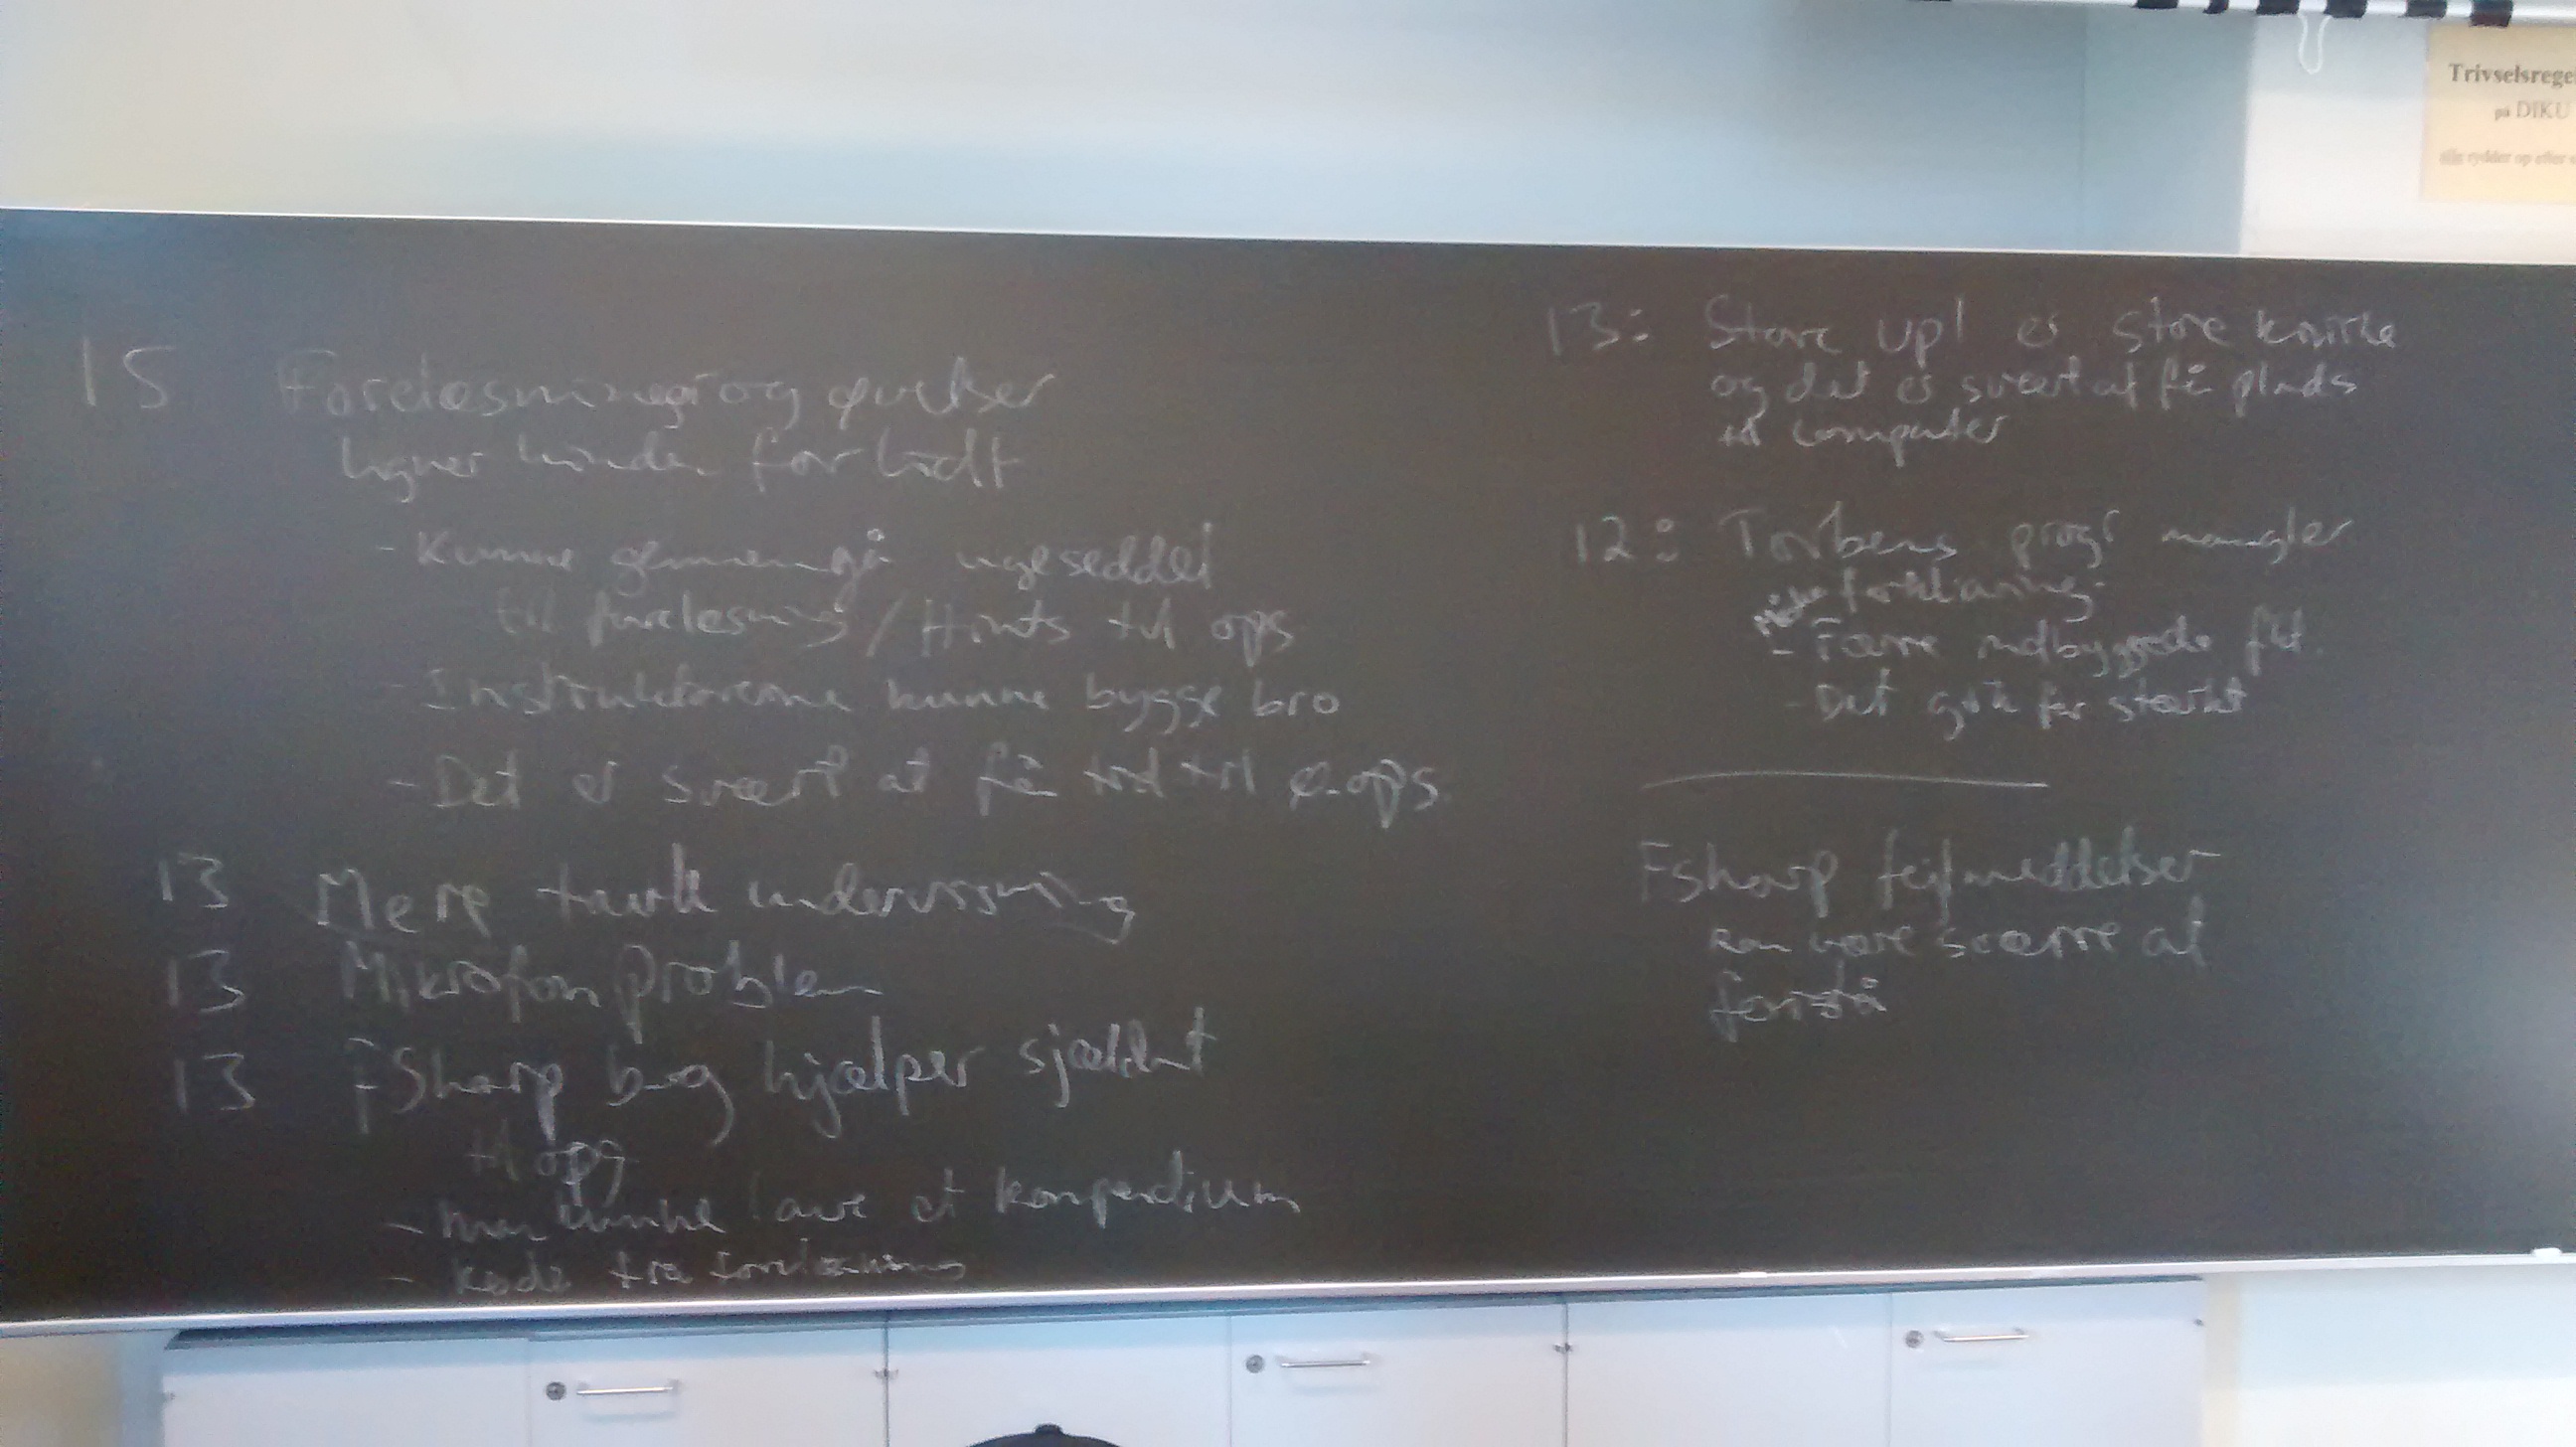 15 Forelæsninger og øvelser
ligner hinanden for lidt
- Kunne gennemgå ugeseddel
til forelæsning / Hints til opg
- Instruktorerne kunne bygge bro
- Det er svært at få tid til ø.opg.
13 Mere tavle undervisning
13 Mikrofon problem
13 FSharp bog hjælper sjældent
til opg
- Man kunne lave et kompendium
- Kode fra forelæsning
13: Store up! er store
og det er svært at få plads
til computer
12: Torbens progr mangler
forklaring
- Færre indbyggede fkt.
- Det gik for stærkt
Fsharp fejlmeddelser
kan være svære at
forstå
Trivselsrege
på DIKU
rydder op efter